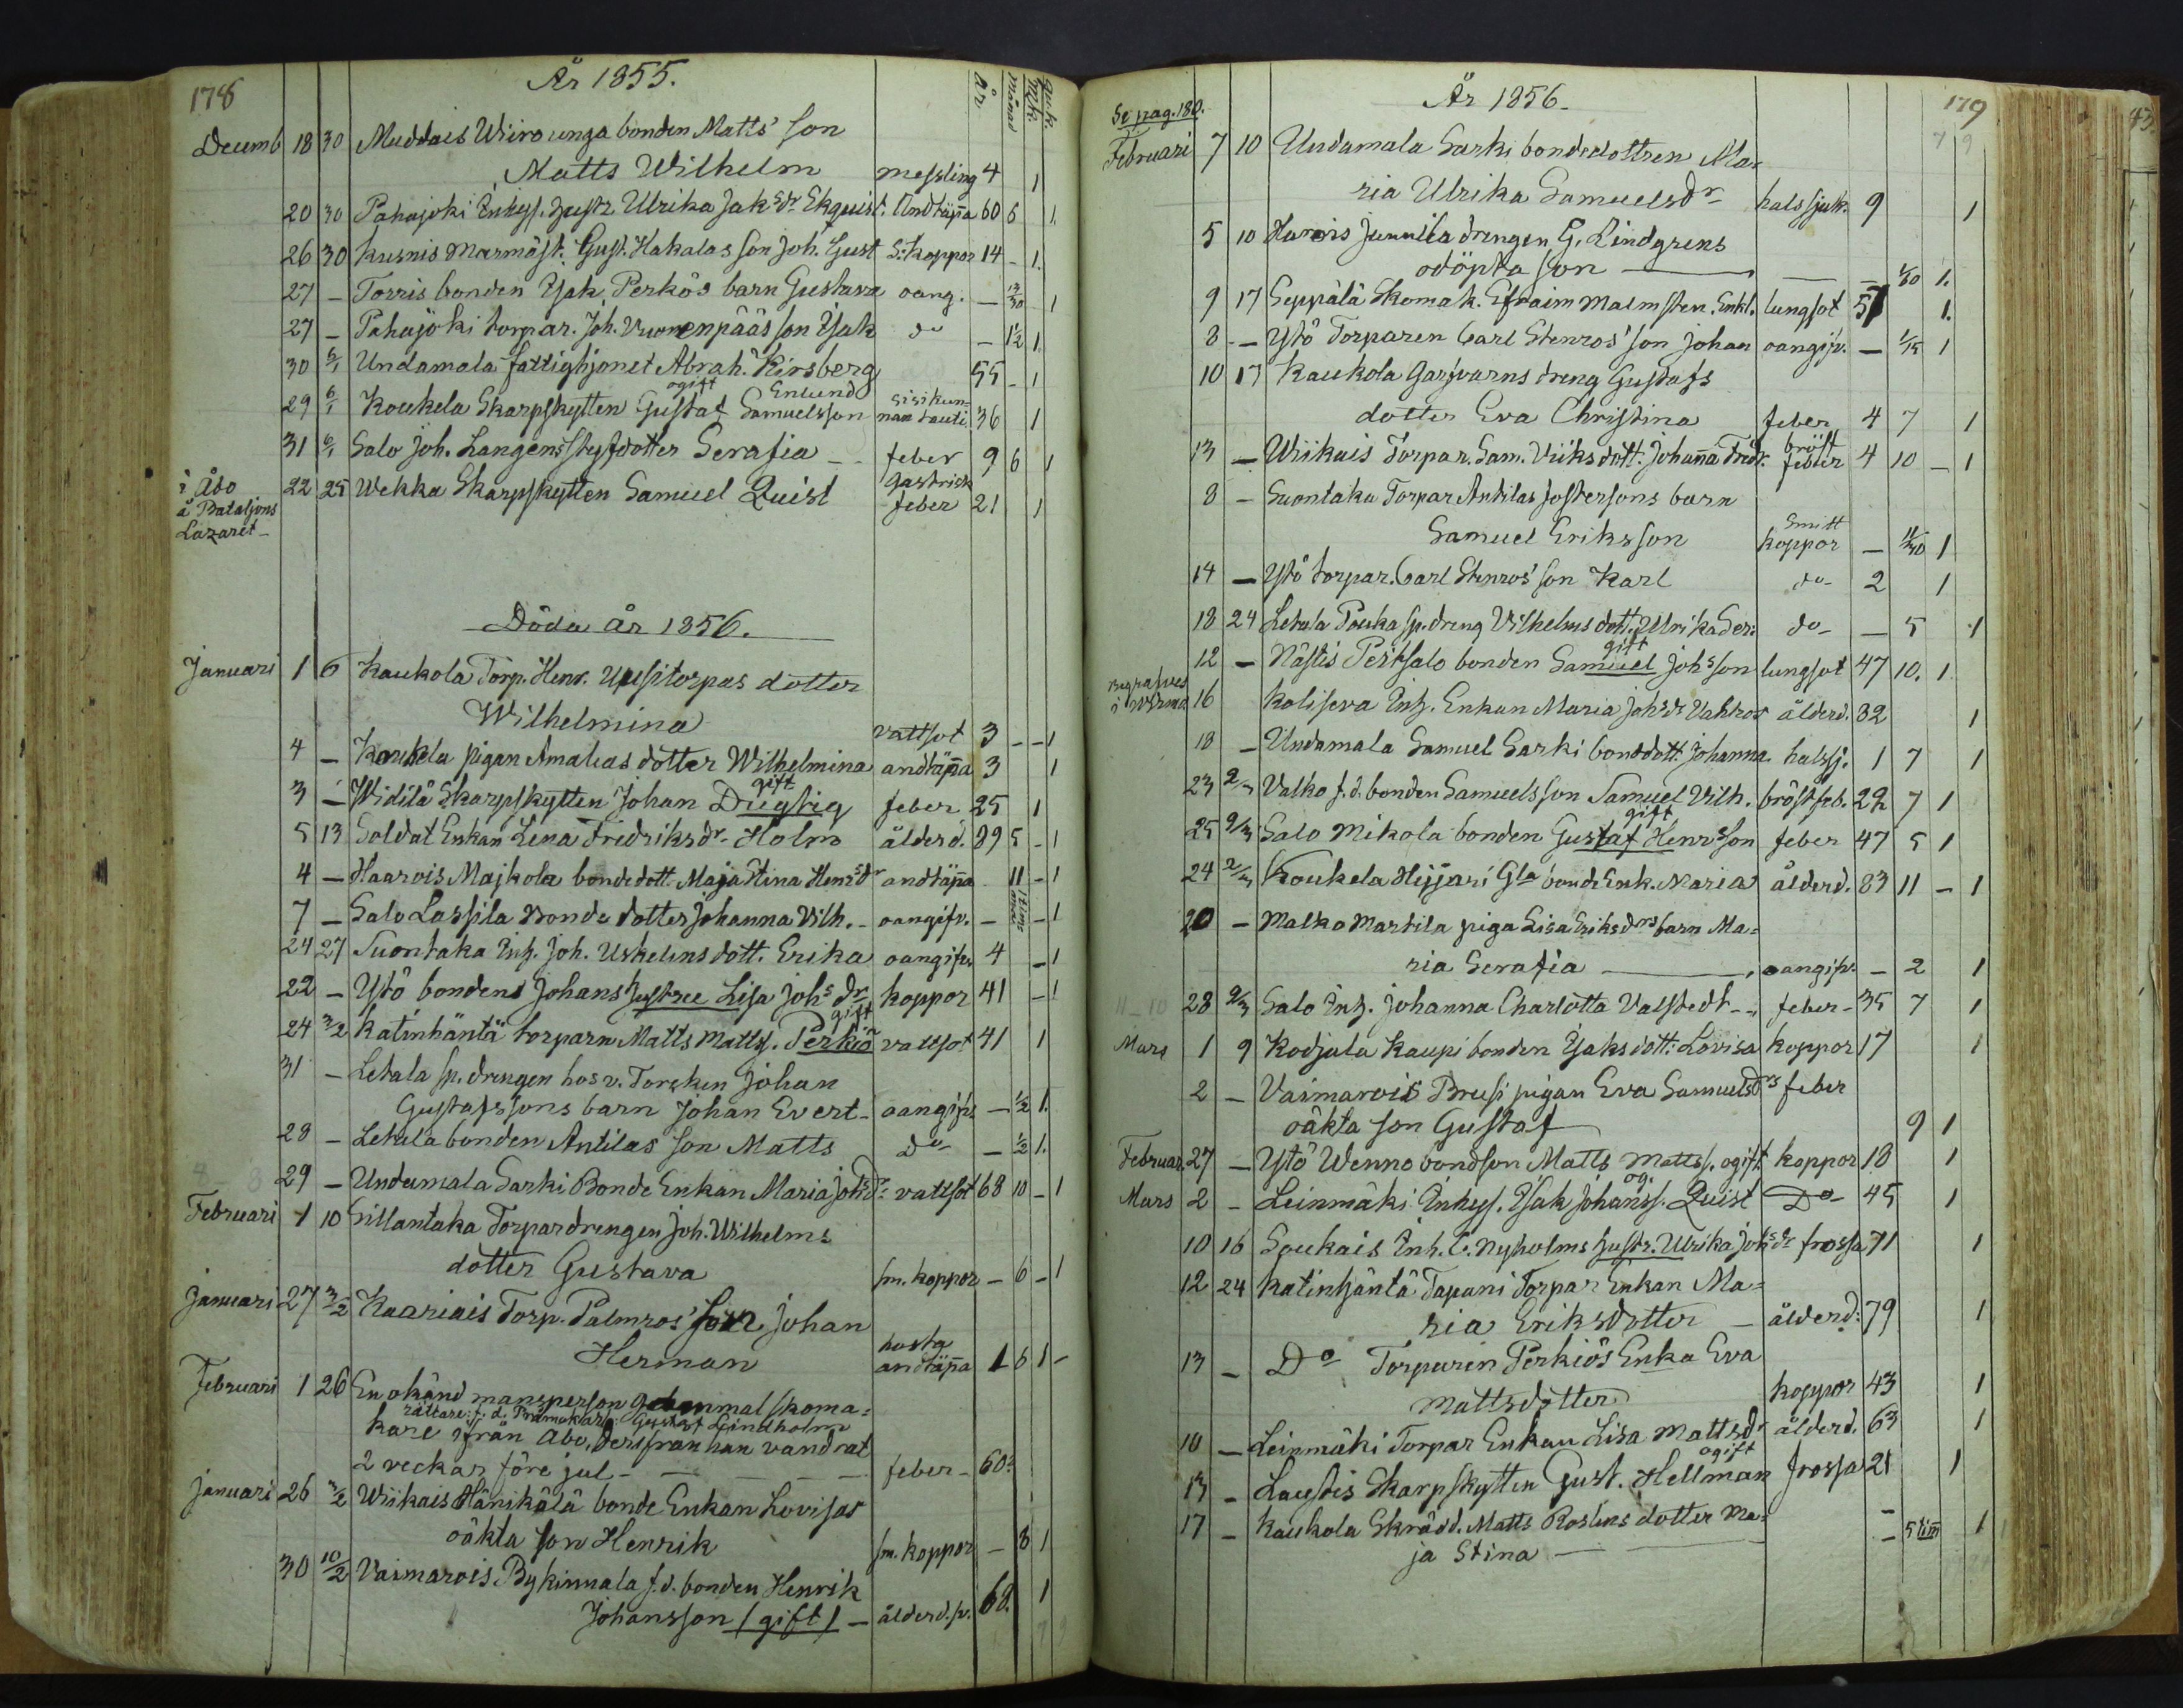 178
År 1855.
år månad m.k. qv.k.
Decemb 18 30 Muddais Wiiro unga bonden Matts' son
Matts Wilhelm messling 4 1
20 30 Pahajoki Inhys. hustr. Ulrika Jaksdr Ekquist. Andtäpa 60 6 1.
26 30 Kusnis Marmäst. Gust. Hakalas son Joh. Gust S. Koppor 14 - 1.
27 - Torris bonden Isak Perkös barn Gustava oang. - 13/30 1
27 - Pahajöki torpar. Joh. Vuorenpääs son Isak do - 1/2 1.
30 6/1 Undamala fattighjonet Abrah. Kirsberg 55 - 1
29 6/1 Koukela Skarpskytten ogift Gustaf Samuelsson Enlund sisikun- nan tauti 36 1
31 6/1 Salo Joh. Langens styfdotter Serafia - - feber 9 6 1
i Åbo
å Bataljons
Lazaret -
22 25 Wekka Skarpskytten Samuel Quist gastrisk feber 21 1
Döda år 1856.
Januari 1 6 Kaukola Torp. Henr. Uusitorpas dotter
Wilhelmina vattsot 3 - - 1
4 - Koukela pigan Amalias dotter Wilhelmina andtäpa 3 1
3 - Widilä Skarpskytten Johan Dugtig gift feber 25 1
5 13 Soldat Enkan Lena Fredriksdr. Holm ålderd. 89 5 - 1
4 - Haarois Majkola bondedott. Maja Stina Henrsdr andtäpa 11 - 1
7 - Salo Lassila Bonde dotter Johanna Vilh. - oangifv. - - 1
24 27 Suontaka Inh. Joh. Uskelins dott. Erika oangifv. 4 - 1
22 - Ytö bondens Johans hustru Lisa Johsdr koppor 41 - 1
24 3/2 Katinhäntä torparn Matts Matts. Perkiö gift vattsot 41 1
31 - Letala sp. drengen hos v. Torcken Johan
Gustafssons barn Johan Evert - oangifv. - 1/2 1.
28 - Letala bonden Antilas son Matts do - - 1/2 1.
29 - Undamala Sarki Bonde Enkan Maria Johsdr. vattsot 68 10 - 1
Februari 1 10 Sillantaka Torpardrengen Joh. Wilhelms
dotter Gustava sm. koppor - 6 - 1
Januari 27 3/2 Kaariais Torp. Palmros' son Johan
Herman hosta andtäpa 1 6 1 -
Februari 1 26 En okänd mansperson gammal skoma-
rättare: f. d. Gustaf Lindholm
kare ifrån Åbo, dersfrån han vandrat
2 veckar före jul - feber - 60?
Januari 26 3/2 Wiikais Hänikälä bonde Enkan Lovisas
oäkta son Henrik sm. koppor - 8 1
30 10/2 Vaimarois Bykinnala f.d. bonden Henrik
Johansson / gift / - ålderd.sv. 68. 1
Se pag. 180.
År 1856.
179
Februari 7 10 Undamala Sarki bondedottren Ma-
ria Ulrika Samuelsdr halssjuk. 9 1
5 10 Haarois Junnila drengen G. Lindgrens
odöpta son - - - 1/30 1.
9 17 Seppälä Skomak. Efraim Malmsten. Enkl. lungsot 57 1.
8 - Ytö Torparen Carl Stenros' son Johan oangifv. - 1/15 1
10 17 Kaukola Garfvarns dreng Gustafs
dotter Eva Christina feber 4 7 1
13 - Wiikais Torpar. Sam. Viiks dott. Johanna Fredr. bröst feber 4 10 - 1
8 - Suontaka Torpar Antilas fostersons barn
Samuel Eriksson Smitt koppor - 11/30 1
14 - Ytö torpar. Carl Stenros' son Karl do - 2 1
18 24 Letala Pouka sp. dreng Vilhelms dott. Ulrika Ser: do - - 5 1
12 - Nästis Pertsalo bonden Samuel Johsson gift lungsot 47 10. 1
Begrafves
i Virmo
16 Koliseva Inh. Enkan Maria Johsdr Vahlros ålderd. 82 1
18 - Undamala Samuel Sarki bonddott. Johanna halssj. 1 7 1
23 2/3 Valko f. d. bonden Samuels son Samuel Vilh. bröstfeb. 22 7 1
25 2/3 Salo Mikola bonden Gustaf Henrsson gift feber 47 5 1
24 2/3 Koukela Hejjari Gla bonde Enk. Maria ålderd. 83 11 - 1
20 - Malko Martila piga Lisa Eriksdrs barn Ma-
ria Serafia - oangifv. - 2 1
28 2/3 Salo Inh. Johanna Charlotta Valstedt - feber - 35 7 1
Mars 1 9 Kodjala Kaupi bonden Isaks dott. Lovisa koppor 17 1
2 - Vaimarois Brusi pigan Eva Samuelsdrs feber
oäkta son Gustaf 9 1
Februar. 27 - Ytö Wenno bondson Matts Mattss. ogift koppor 18 1
Mars 2 - Leinmäki Inhys. Isak Johanss. Quist og. Do - 45 1
10 16 Soukais Inh. C. Nyholms hustr. Ulrika Johsdr frossa 71 1
12 24 Katinhäntä Tapani Torpar Enkan Ma-
ria Eriksdotter - ålderd: 79 1
13 - Do Torparen Perkiös Enka Eva
Mattsdotter koppor 43 1
10 - Leinmäki Torpar Enkan Lisa Mattsdr ålderd. 63 1
13 - Laustis Skarpskytten Gust. Hellman ogift frossa 21 1
17 - Kaukola Skrädd. Matts Roslins dotter Ma-
ja Stina - - - 5 tim 1